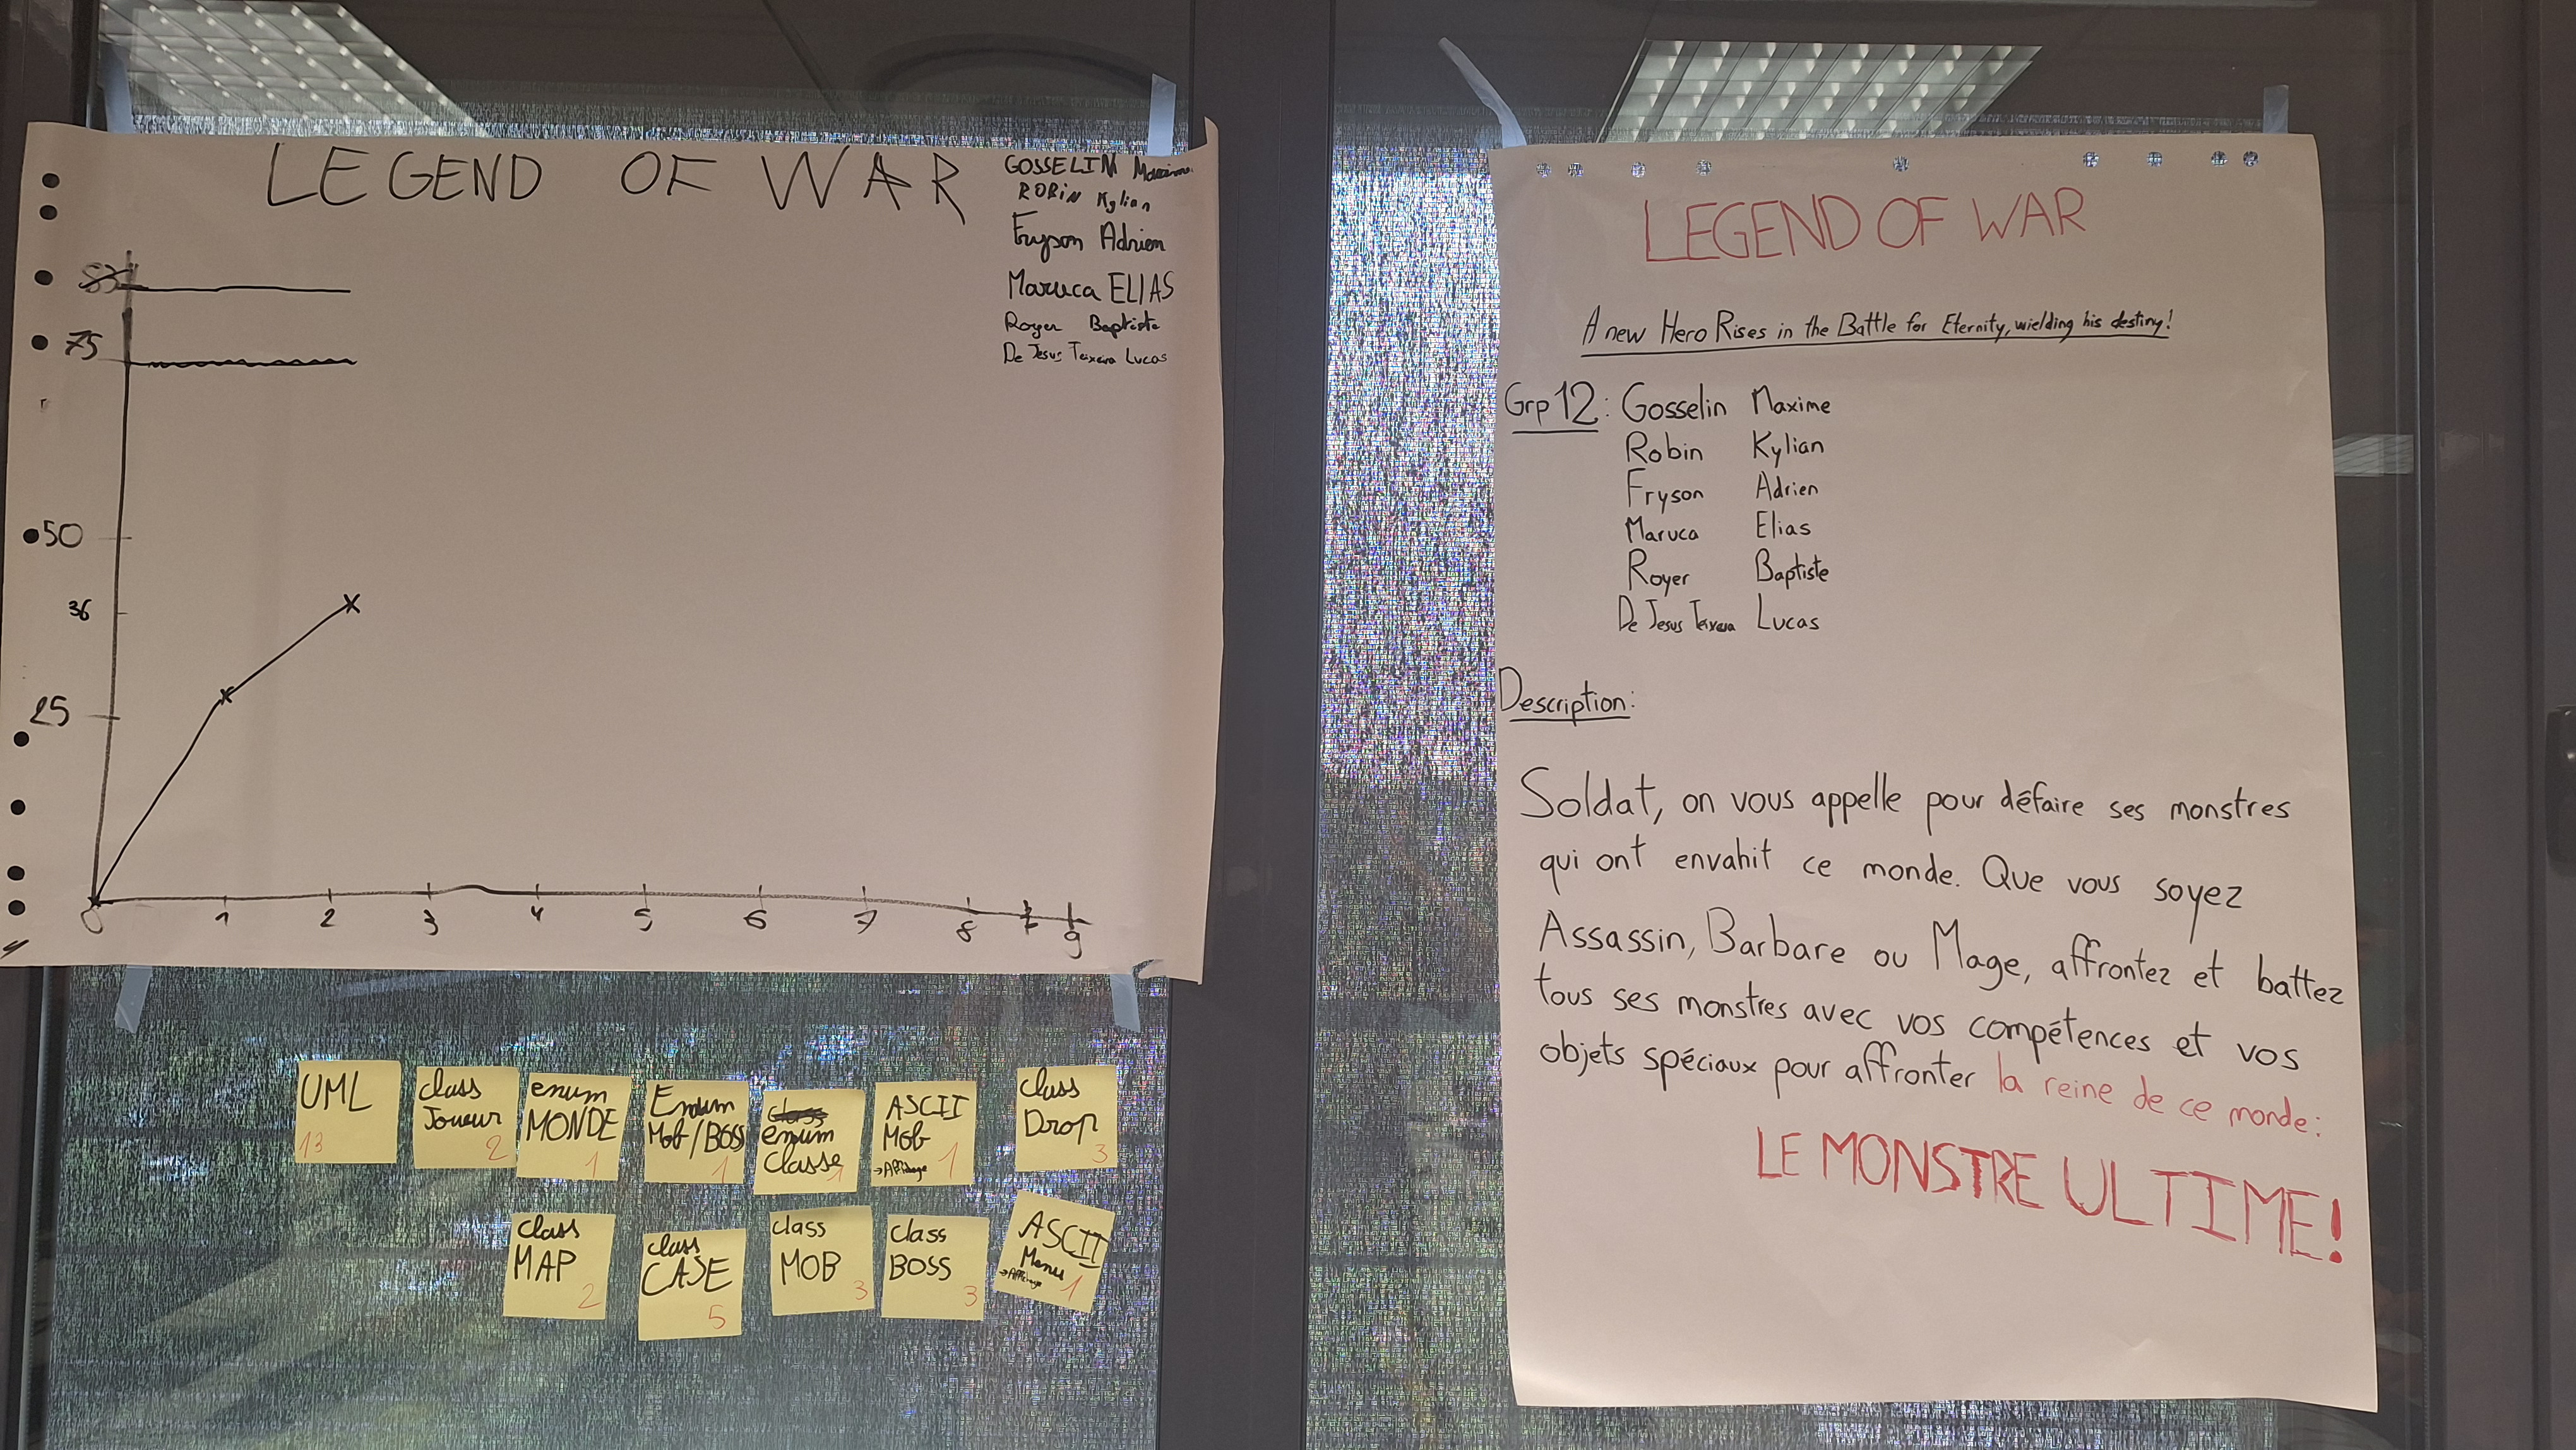 LEGEND OF WAR
GOSSELIN Maxime
ROBIN Kylian
Fryson Adrien
Maruca ELIAS
Royer Baptiste
De Jesus Teixeira Lucas
83
75
50
36
25
0 1 2 3 4 5 6 7 8 9
UML
13
class
Joueur
2
enum
MONDE
1
Enum
Mob/BOSS
1
class
enum
classe
1
ASCII
Mob
→Affichage
1
class
Drop
3
class
MAP
2
class
CASE
5
class
MOB
3
class
BOSS
3
ASCII
Menu
→Affichage
1
LEGEND OF WAR
A new Hero Rises in the Battle for Eternity, wielding his destiny!
Grp 12: Gosselin Maxime
Robin Kylian
Fryson Adrien
Maruca Elias
Royer Baptiste
De Jesus Teixeira Lucas
Description:
Soldat, on vous appelle pour défaire ses monstres
qui ont envahit ce monde. Que vous soyez
Assassin, Barbare ou Mage, affrontez et battez
tous ses monstres avec vos compétences et vos
objets spéciaux pour affronter la reine de ce monde:
LE MONSTRE ULTIME!